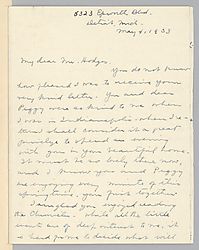 5323 Blvd.
Detroit, Mich.
May 4, 1933
My dear Mr. Hodges
You do not know
how pleased I was to receive your
very kind letter. You and dear
Peggy were so kind to me when
I was in Indianapolis when I
shall consider it a great
privilege to spend an evening
with you in your beautiful home.
It must be so lovely there now,
and I know you and Peggy
are enjoying every minute of this
springtime in your first together
I am glad you enjoyed reading
the Chronicles. While all the little
are of deep interest to me, it
is hard for me to decide what will